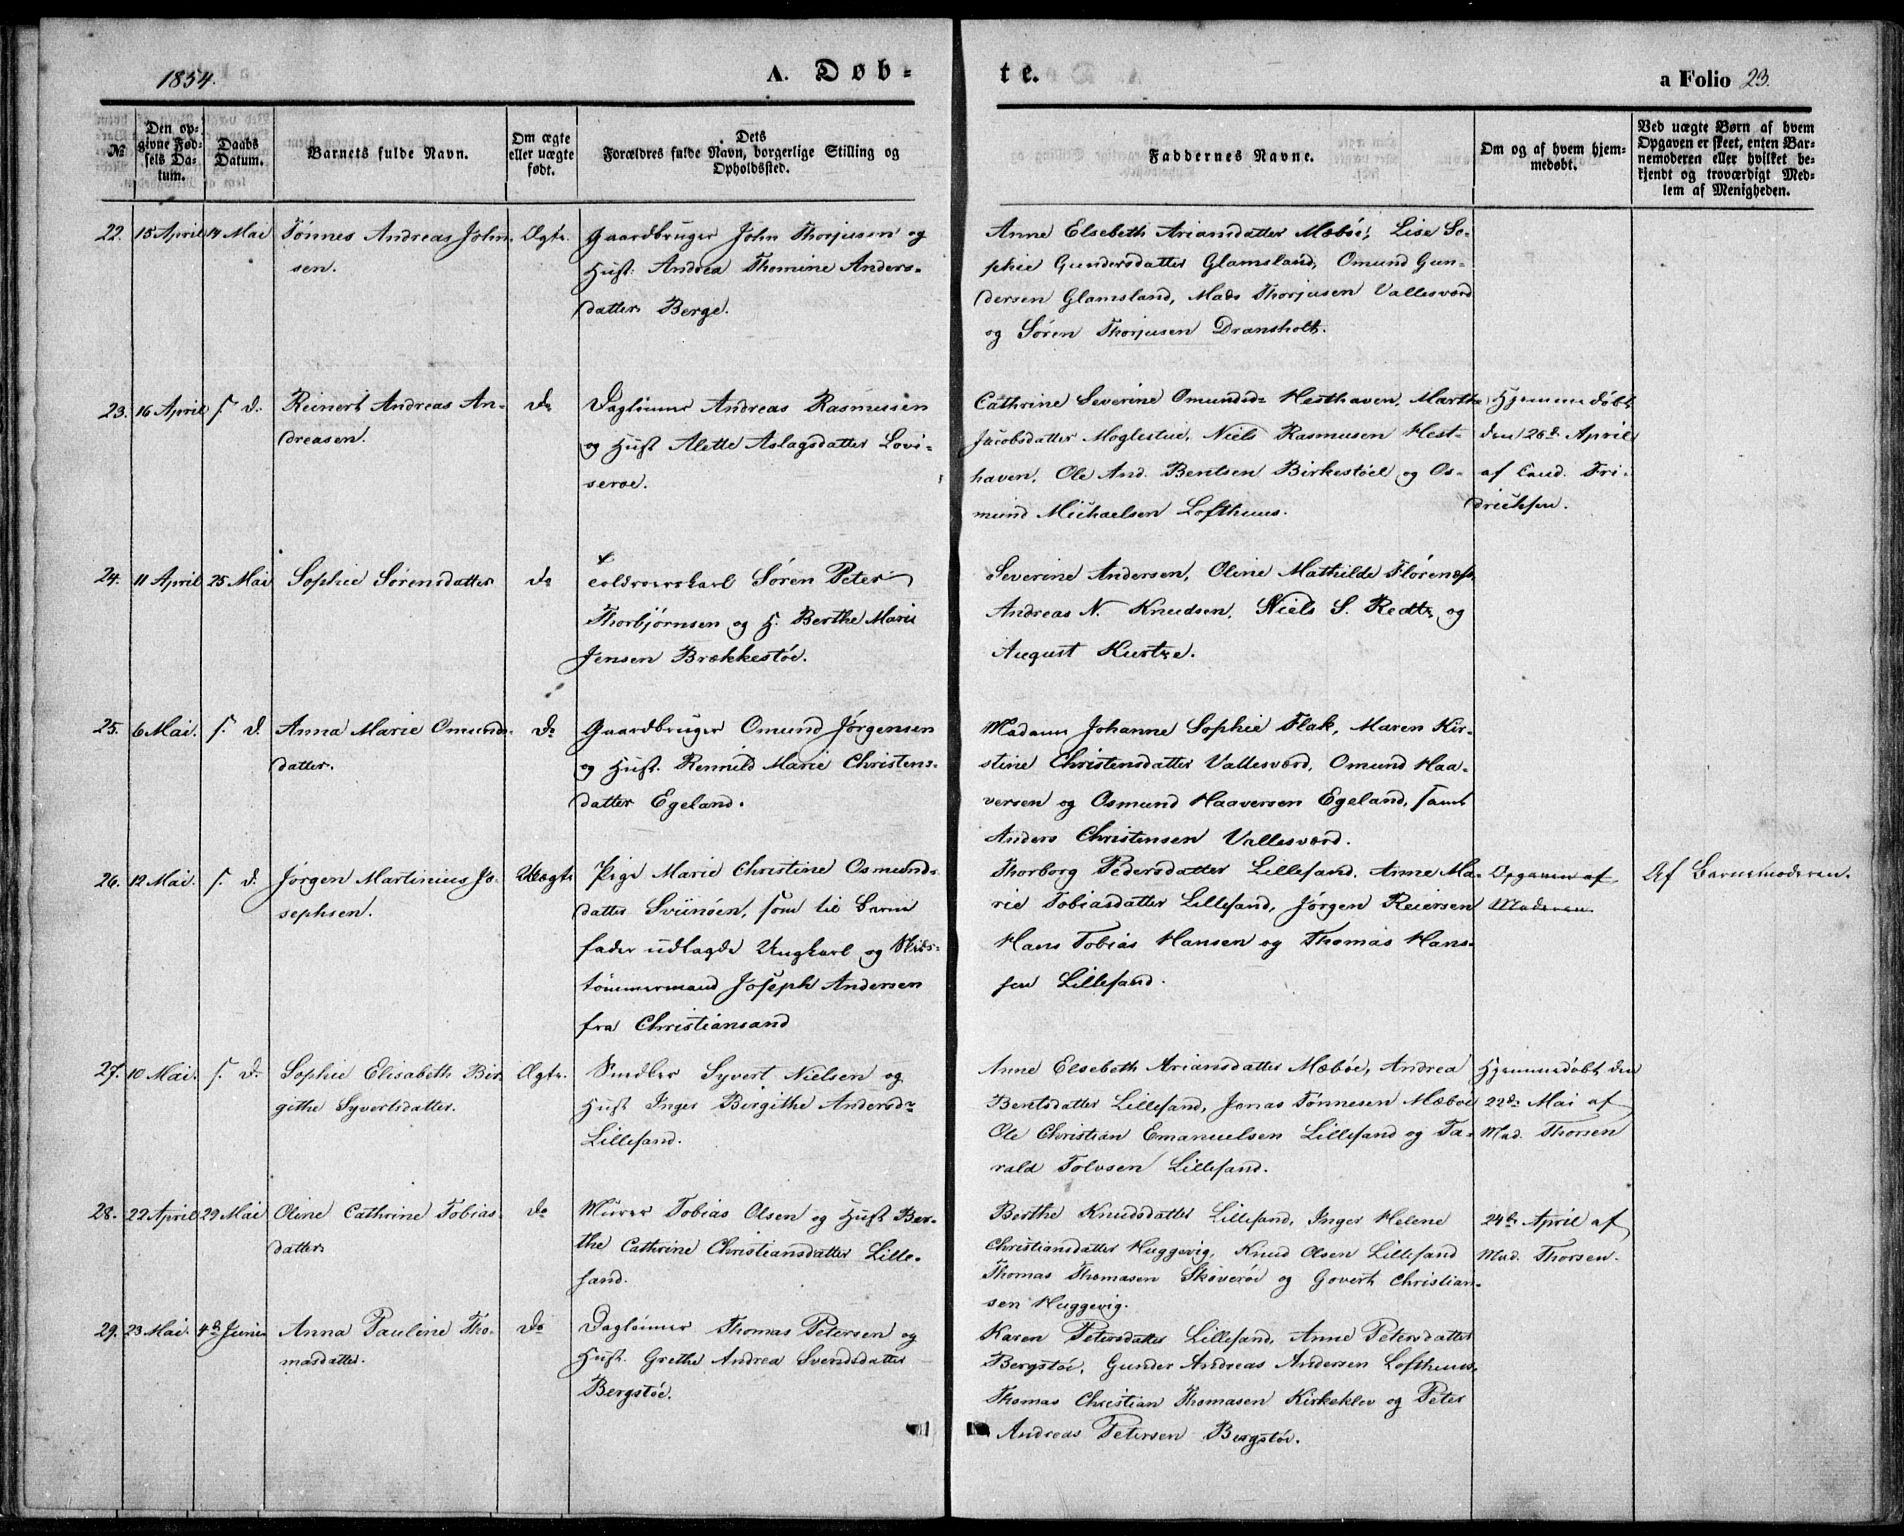 1854.
A. Døb-
te.
a Folio 23.
№
Den op-
givne Fød-
sels Da-
tum.
Daabs
Datum.
Barnets fulde Navn.
Om ægte
eller uægte
født.
Dets
Forældres fulde Navn, borgerlige Stilling og
Opholdssted.
Faddernes Navne.
Om og af hvem hjem-
medøbt.
Ved uægte Børn af hvem
Opgaven er skeet, enten Bar-
nemoderen eller hvilket be-
kjendt og troværdigt Med-
lem af Menigheden.
22. 15 April 14 Mai Tønnes Andreas John-
sen.
Ægte.
Gaardbruger John Thorjusen og
Hust. Andrea Thomine Anders-
datter Berge.
Anne Elsebeth Ariansdatter Mæbøe, Lise So-
phie Gundersdatter Glamsland, Omund Gun-
dersen Glamsland, Mads Thorjusen Vallesværd
og Søren Thorjusen Dransholt.
23. 16 April s. d. Reinert Andreas An-
dreasen.
Do
Dagleiner Andreas Rasmussen
og Hust Alette Aslagsdatter Lovi-
seroe.
Cathrine Severine Omundsd. Hesthaven, Marthe
Jacobsdatter Moglestue, Niels Rasmusen Hest-
haven, Ole And. Bentsen Birkestøel og Os-
mund Michaelsen Lofthuus.
Hjemmedøbt
den 26de April
af Cand. Fri-
drichsen.
24. 11 April 25 Mai Sophie Sørensdatter
Do
Søren Peter
Thorbjørnsen og H. Berthe Marie
Jensen Brækkestøe.
Severine Andersen, Oline Mathilde
Andreas N. Knudsen, Niels S. og
August
25. 6 Mai. s. d. Anna Marie Omunds-
datter.
Do
Gaardbruger Omund Jørgensen
og Hust. Rennild Marie Christens-
datter Egeland.
Madam Johanne Sophie Flak, Maren Kir-
stine Christensdatter Vallesværd, Omund Haa-
versen og Osmund Haaversen Egeland, samt
Anders Christensen Vallesværd.
26. 12 Mai. s. d. Jørgen Martinius Jo-
sephsen.
Uægte
Pige Marie Christine Osmunds-
datter Sviinøen, som til Barne
fader udlagde Ungkarl og Skibs-
tømmermand Joseph Andersen
fra Christiansand
Thorborg Pedersdatter Lillesand, Anne Ma-
rie Tobiasdatter Lillesand, Jørgen Reiersen
Hans Tobias Hansen og Thomas Han-
sen Lillesand.
Opgaven af
Moderen
Af Barnemoderen.
27. 10 Mai. s. d. Sophie Elisabeth Bir-
githe Syvertsdatter.
Ægte.
Snedker Syvert Nielsen og
Hust Inger Birgithe Andersdr
Lillesand.
Anne Elsebeth Ariansdatter Mæbøe, Andrea
Bentsdatter Lillesand, Jonas Tønnesen Mæbøe
Ole Christian Emanuelsen Lillesand og Ta-
rald Tolvsen Lillesand.
Hjemmedøbt den
22de Mai af
Mad. Thorsen
28. 22 April 29 Mai Oline Cathrine Tobias-
datter
Do
Murer Tobias Olsen og Hust Ber-
the Cathrine Christiansdatter Lille-
sand.
Berthe Knudsdatter Lillesand, Inger Helene
Christiansdatter Huggevig, Knud Olsen Lillesand
Thomas Thomasen Skoverøe og Govert Christian-
sen Huggevig.
24de April af
Mad. Thorsen.
29. 23 Mai. 4de Junie Anna Pauline Tho-
masdatter.
Do
Dagleiner Thomas Petersen og
Hust. Grethe Andrea Svendsdatter
Bergstøe.
Karen Petersdatter Lillesand, Anne Petersdatter
Bergstøe, Gunder Andreas Andersen Lofthuus,
Thomas Christian Thomasen Kirkeklev og Peter
Andreas Petersen Bergstøe.